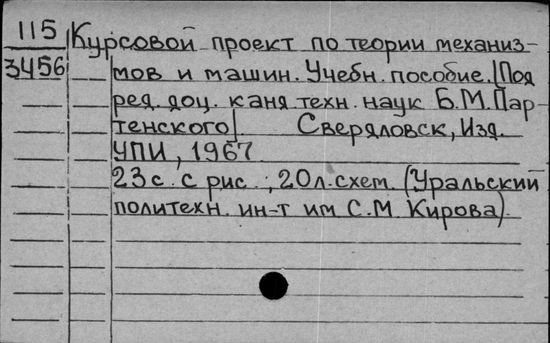 115
3456
Курсовой проект по теории механиз-
мов и машин. Учебн. пособие. [Под
ред. доц. канд. техн. наук Б.М. Пар-
тенского]. Свердловск, Изд.
УПИ, 1967
23 с. с рис.; 20 л. схем. (Уральский
политехн. ин-т им С.М. Кирова).